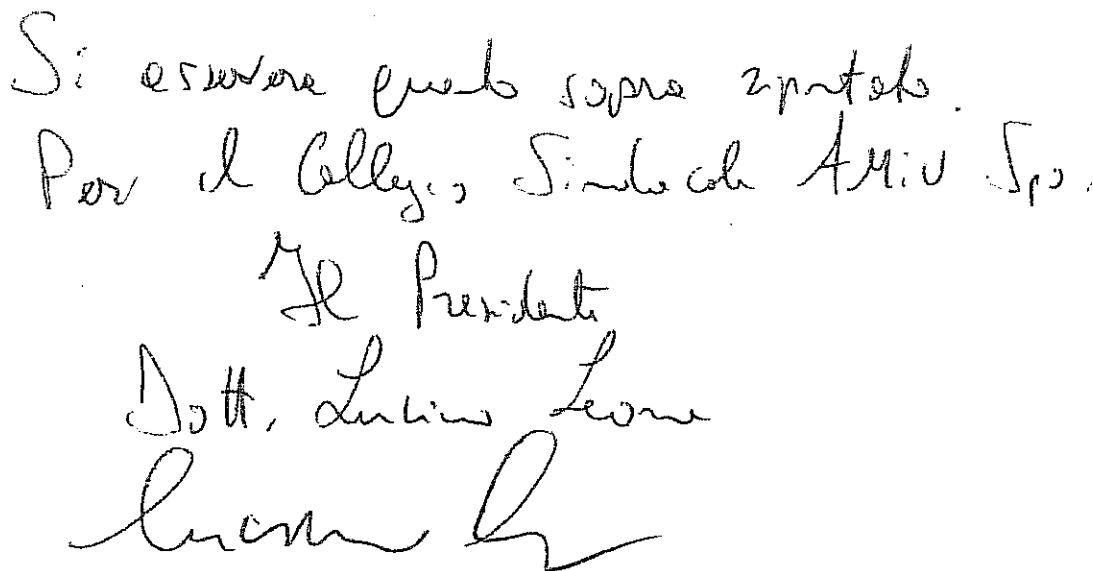 Si assevera quanto sopra riportato.
Per il Collegio Sindacale AMIU Spa.
Il Presidente
Dott. Luciano Leone